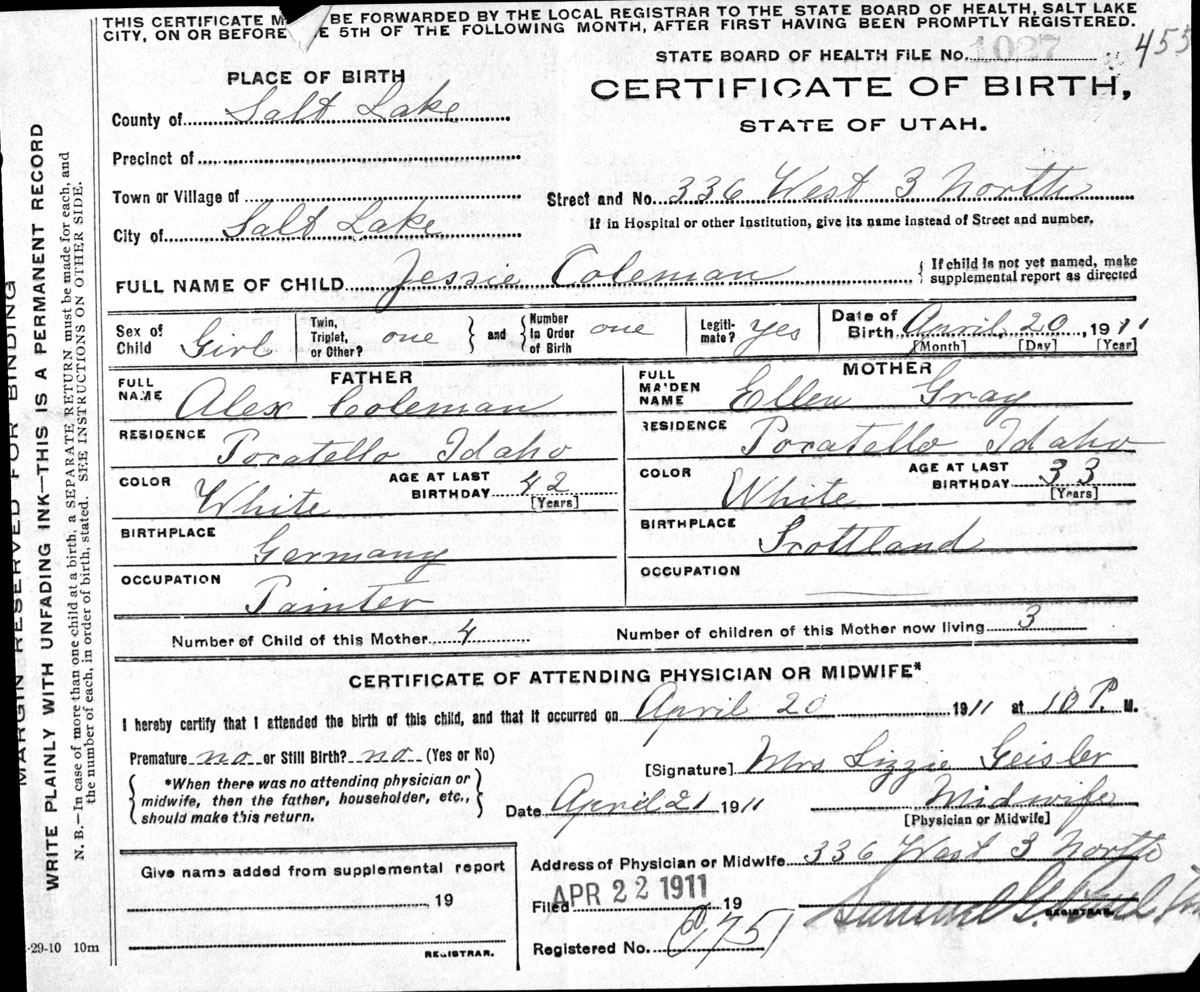 THIS CERTIFICATE M BE FORWARDED BY THE LOCAL REGISTRAR TO THE STATE BOARD OF HEALTH, SALT LAKE
CITY, ON OR BEFORE E 5TH OF THE FOLLOWING MONTH, AFTER FIRST HAVING BEEN PROMPTLY REGISTERED.
STATE BOARD OF HEALTH FILE No. 1027 455
PLACE OF BIRTH
CERTIFICATE OF BIRTH,
STATE OF UTAH.
County of Salt Lake
Precinct of
Town or Village of
Street and No. 336 West 3 North
If in Hospital or other Institution, give its name instead of Street and number.
City of Salt Lake
FULL NAME OF CHILD Jessie Coleman { If child is not yet named, make supplemental report as directed
Sex of Child Girl Twin, Triplet, or Other? one } and { Number In Order of Birth one Legiti-mate? yes Date of Birth April 20, 1911
[Month] [Day] [Year]
FATHER MOTHER
FULL NAME Alex Coleman FULL MAIDEN NAME Ellen Gray
RESIDENCE Pocatello Idaho RESIDENCE Pocatello Idaho
COLOR White AGE AT LAST BIRTHDAY 42 [Years] COLOR White AGE AT LAST BIRTHDAY 33 [Years]
BIRTHPLACE Germany BIRTHPLACE Scottland
OCCUPATION Painter OCCUPATION
Number of Child of this Mother 4 Number of children of this Mother now living 3
CERTIFICATE OF ATTENDING PHYSICIAN OR MIDWIFE*
I hereby certify that I attended the birth of this child, and that it occurred on April 20 1911 at 10 P. M.
Premature no or Still Birth? no (Yes or No)
[Signature] Mrs Lizzie Geisler
{ *When there was no attending physician or midwife, then the father, householder, etc., should make this return. }
Date April 21 1911 Midwife
[Physician or Midwife]
Give name added from supplemental report
19
REGISTRAR.
Address of Physician or Midwife 336 West 3 North
Filed APR 22 1911 19
REGISTRAR.
Registered No.
-29-10 10m
MARGIN RESERVED FOR BINDING
WRITE PLAINLY WITH UNFADING INK—THIS IS A PERMANENT RECORD
N. B.—In case of more than one child at a birth, a SEPARATE RETURN must be made for each, and
the number of each, in order of birth, stated. SEE INSTRUCTIONS ON OTHER SIDE.